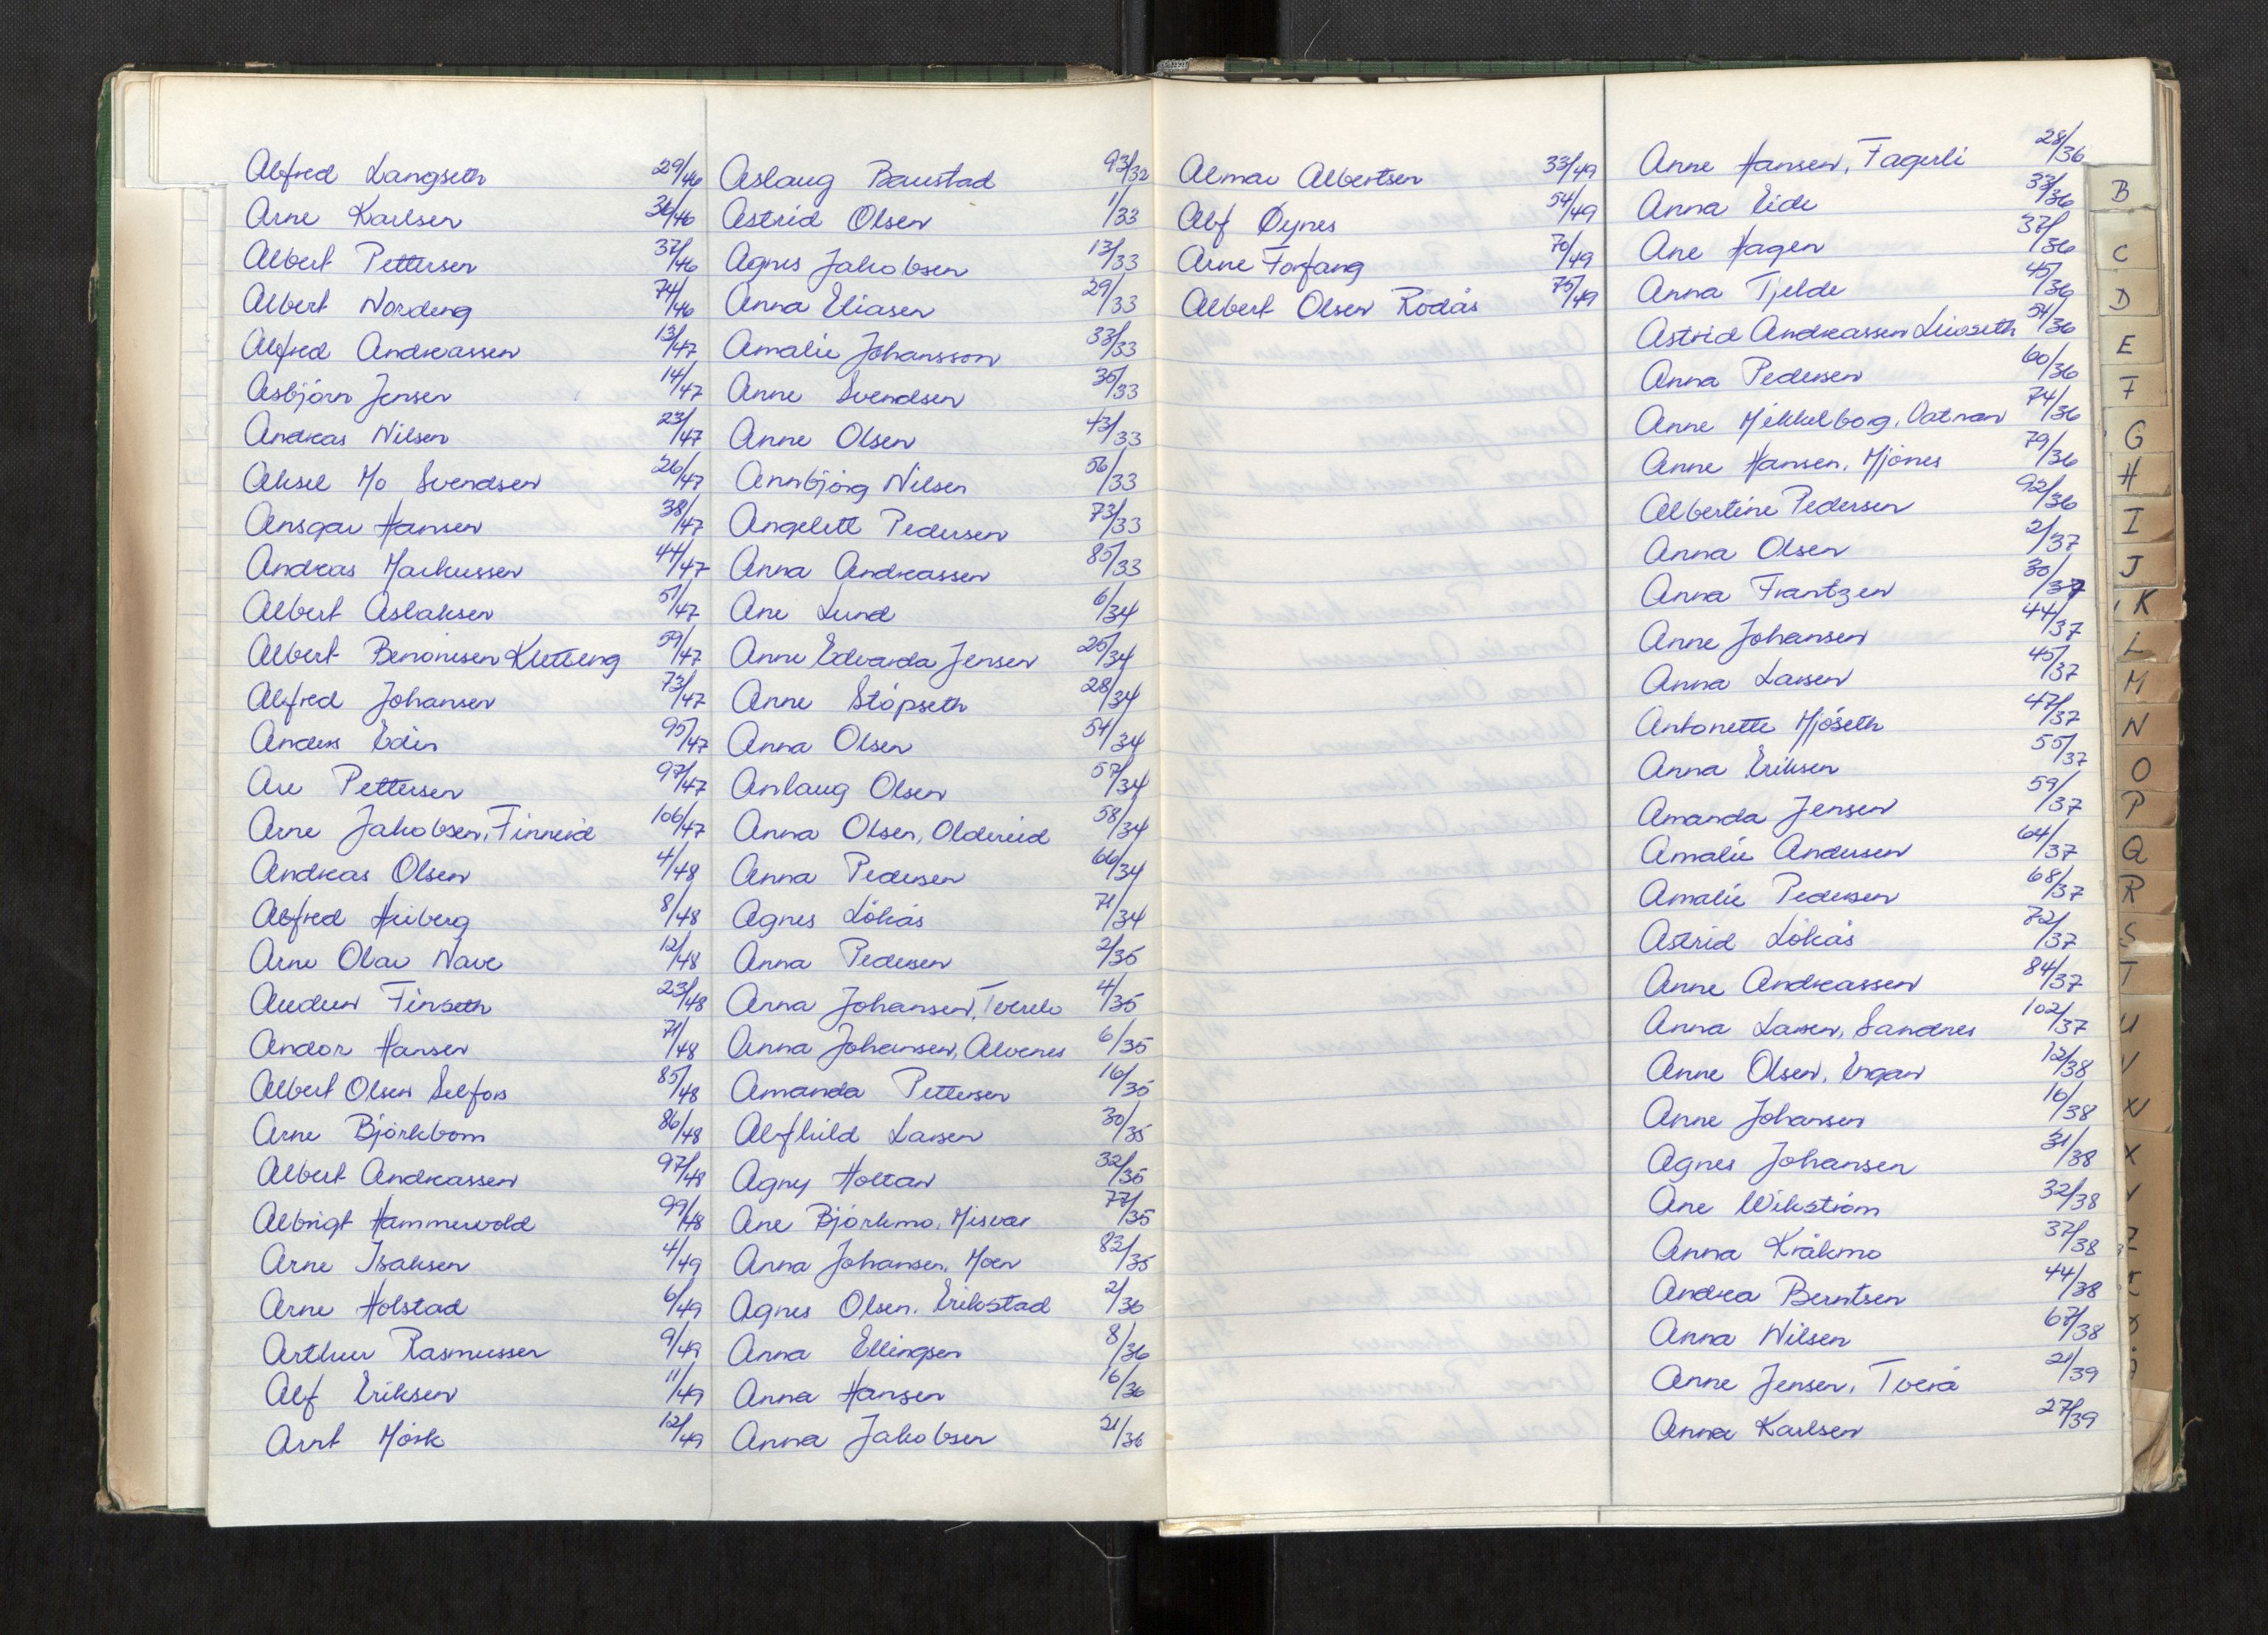 Alfred Langseth 29/46
Arne Karlsen 36/46
Albert Pettersen 37/46
Albert Nordeng 74/46
Alfred Andreassen 13/47
Asbjørn Jensen 14/47
Andreas Nilsen 23/47
Aksel Mo Svendsen 26/47
Ansgar Hansen 38/47
Andreas Markussen 44/47
Albert Aslaksen 51/47
Albert Benonisen Kletteng 59/47
Alfred Johansen 73/47
Anders Edin 95/47
Are Pettersen 97/47
Arne Jakobsen, Finneid 106/47
Andreas Olsen 4/48
Alfred Heiberg 8/48
Arne Olav Nave 12/48
Audun Finseth 23/48
Andor Hansen 71/48
Albert Olsen Selfors 85/48
Arne Björkbom 86/48
Albert Andreassen 97/48
Albrigt Hammervold 99/48
Arne Isaksen 4/49
Arne Holstad 6/49
Arthur Rasmussen 9/49
Alf Eriksen 11/49
Arnt Mørk 12/49
Aslaug Baustad 93/32
Astrid Olsen 1/33
Agnes Jakobsen 13/33
Anna Eliasen 29/33
Amalie Johansson 33/33
Anne Svendsen 35/33
Anne Olsen 43/33
Annbjørg Nilsen 56/33
Angelett Pedersen 73/33
Anna Andreassen 85/33
Ane Lund 6/34
Anne Edvarda Jensen 25/34
Anne Støpseth 28/34
Anna Olsen 54/34
Anlaug Olsen 57/34
Anna Olsen, Oldereid 58/34
Anna Pedersen 66/34
Agnes Løkås 71/34
Anna Pedersen 2/35
Anna Johansen, Tverelv 4/35
Anna Johansen, Alvenes 6/35
Amanda Pettersen 16/35
Alfhild Larsen 30/35
Agny Holtan 32/35
Ane Bjørkmo, Misvær 77/35
Anna Johansen, Moen 82/35
Agnes Olsen, Erikstad 2/36
Anna Ellingsen 8/36
Anna Hansen 16/36
Anna Jakobsen 21/36
Almar Albertsen 33/49
Alf Øynes 54/49
Arne Forfang 70/49
Albert Olsen Rødås 75/49
Anne Hansen, Fagerli 28/36
Anna Eide 33/36
Ane Hagen 37/36
Anna Tjelde 45/36
Astrid Andreassen Leivseth 54/36
Anna Pedersen 60/36
Anne Mikkelborg, Vatnan 74/36
Anne Hansen, Mjønes 79/36
Albertine Pedersen 92/36
Anna Olsen 2/37
Anna Frantzen 30/37
Anne Johansen 44/37
Anna Larsen 45/37
Antonette Mjøseth 47/37
Anna Eriksen 55/37
Amanda Jensen 59/37
Amalie Andersen 64/37
Amalie Pedersen 68/37
Astrid Løkås 72/37
Anne Andreassen 84/37
Anna Larsen, Sandnes 102/37
Anne Olsen, Engan 12/38
Anne Johansen 16/38
Agnes Johansen 31/38
Ane Wikström 32/38
Anna Kråkmo 37/38
Andrea Berntsen 44/38
Anna Nilsen 67/38
Anne Jensen, Tverå 21/39
Anna Karlsen 27/39
B
C
D
E
F
G
H
I
J
K
L
M
N
O
P
Q
R
S
T
U
V
W
X
Y
Z